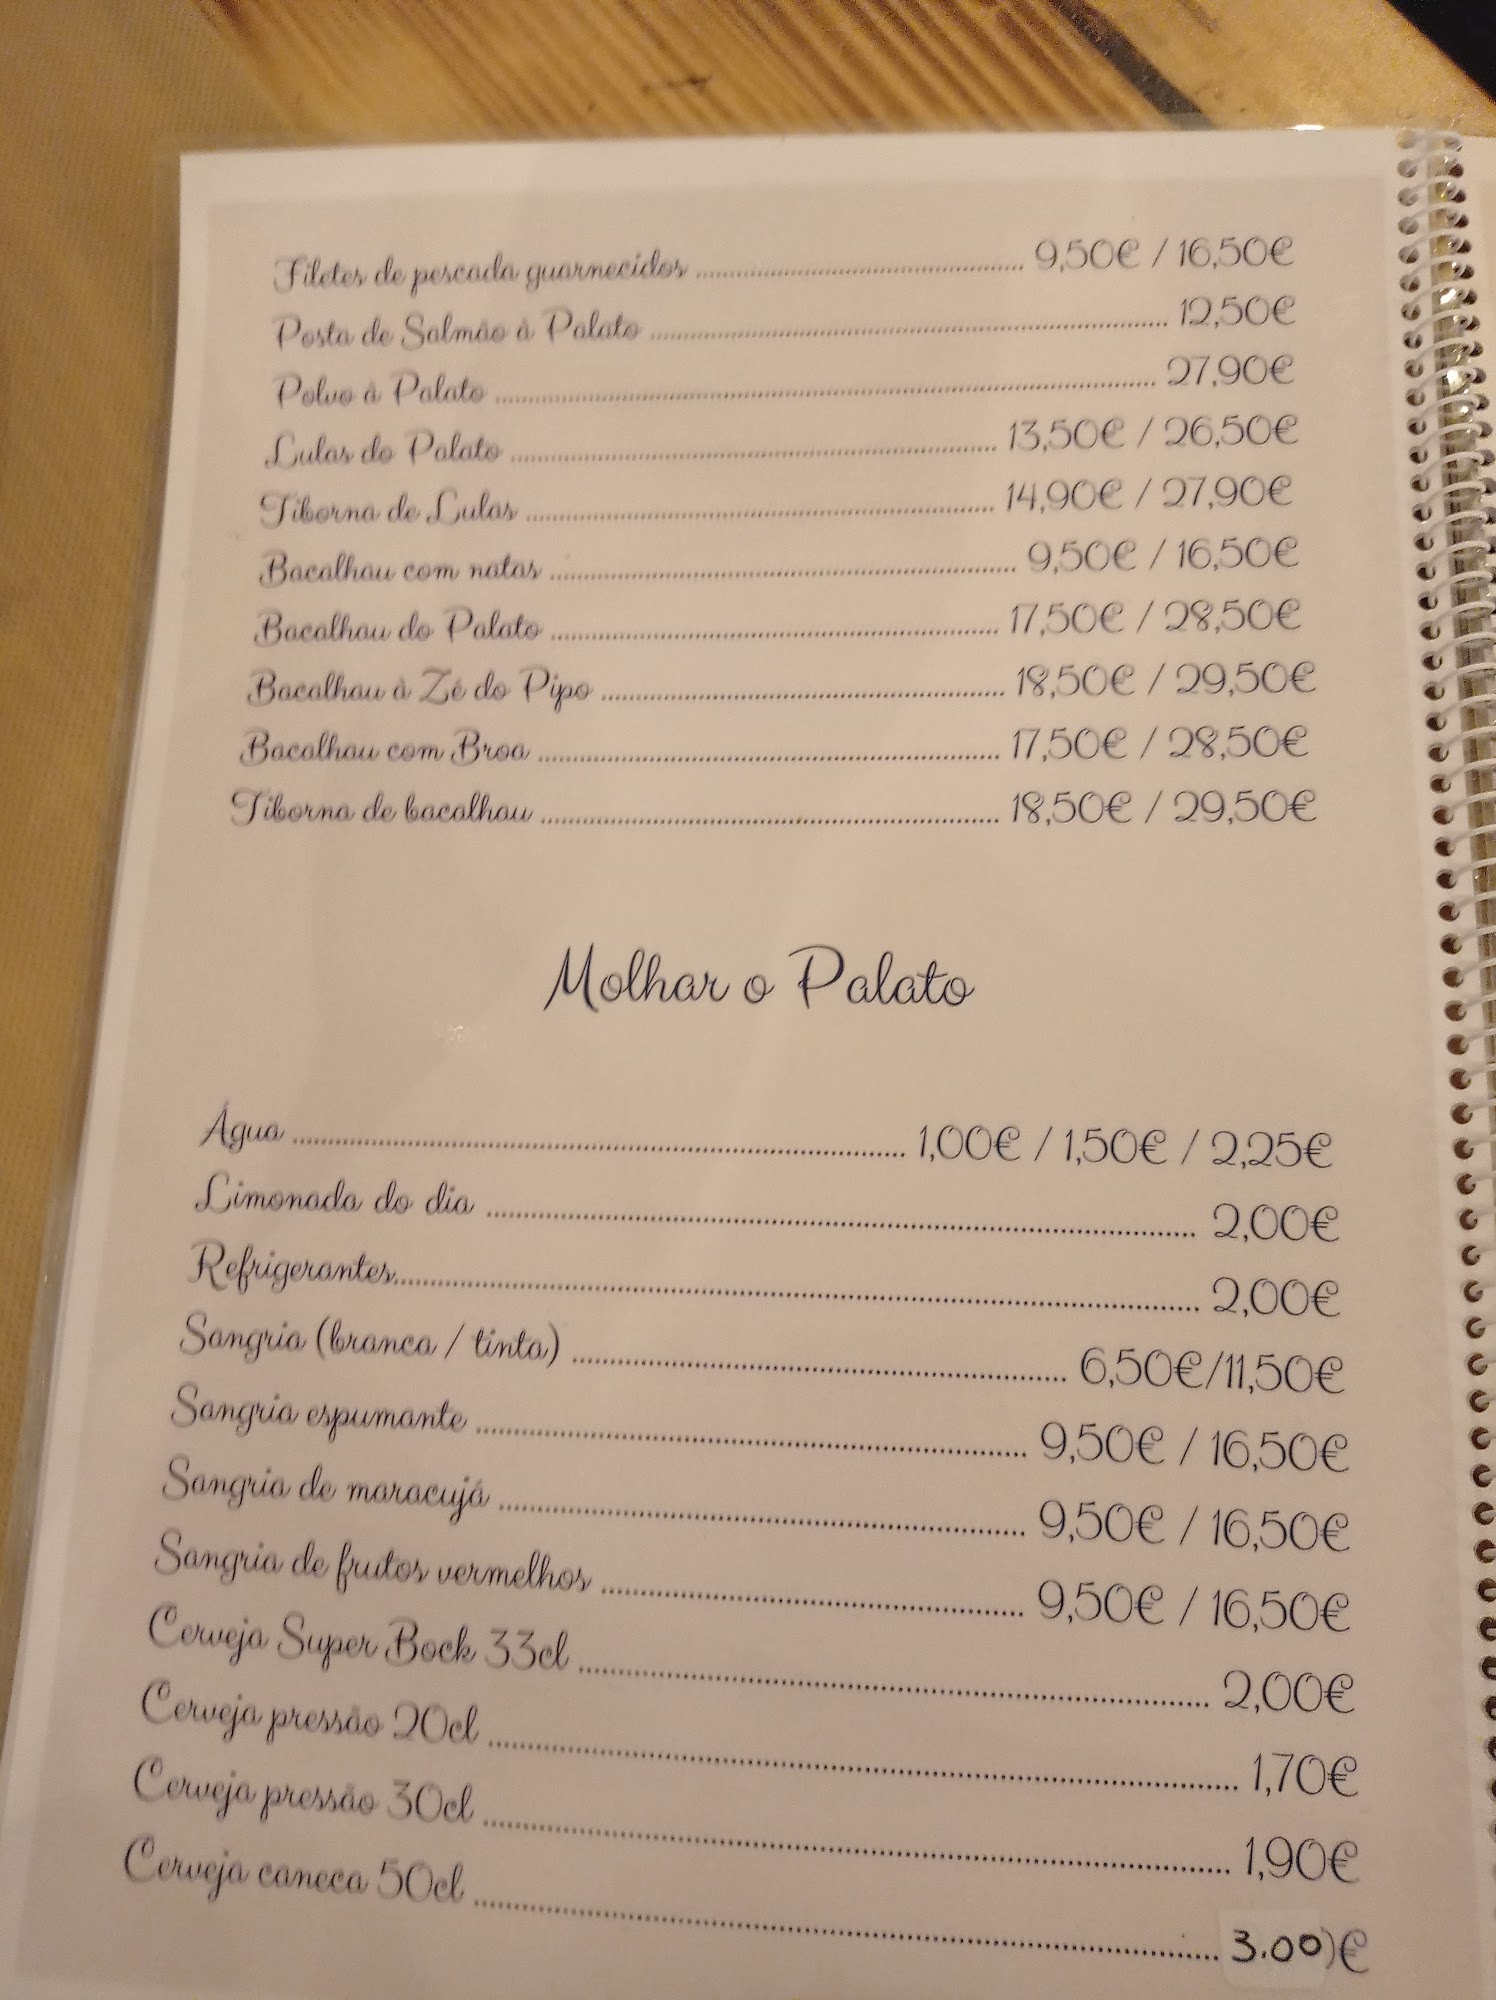 Filetes de pescada guarnecidos ........ 9,50€ / 16,50€
Posta de Salmão à Palato ........ 12,50€
Polvo à Palato ........ 27,90€
Lulas do Palato ........ 13,50€ / 26,50€
Tiborna de Lulas ........ 14,90€ / 27,90€
Bacalhau com natas ........ 9,50€ / 16,50€
Bacalhau do Palato ........ 17,50€ / 28,50€
Bacalhau à Zé do Pipo ........ 18,50€ / 29,50€
Bacalhau com Broa ........ 17,50€ / 28,50€
Tiborna de bacalhau ........ 18,50€ / 29,50€
Molhar o Palato
Água ........ 1,00€ / 1,50€ / 2,25€
Limonada do dia ........ 2,00€
Refrigerantes........ 2,00€
Sangria (branca / tinta) ........ 6,50€/11,50€
Sangria espumante ........ 9,50€ / 16,50€
Sangria de maracujá ........ 9,50€ / 16,50€
Sangria de frutos vermelhos ........ 9,50€ / 16,50€
Cerveja Super Bock 33cl ........ 2,00€
Cerveja pressão 20cl ........ 1,70€
Cerveja pressão 30cl ........ 1,90€
Cerveja caneca 50cl ........ 3.00€